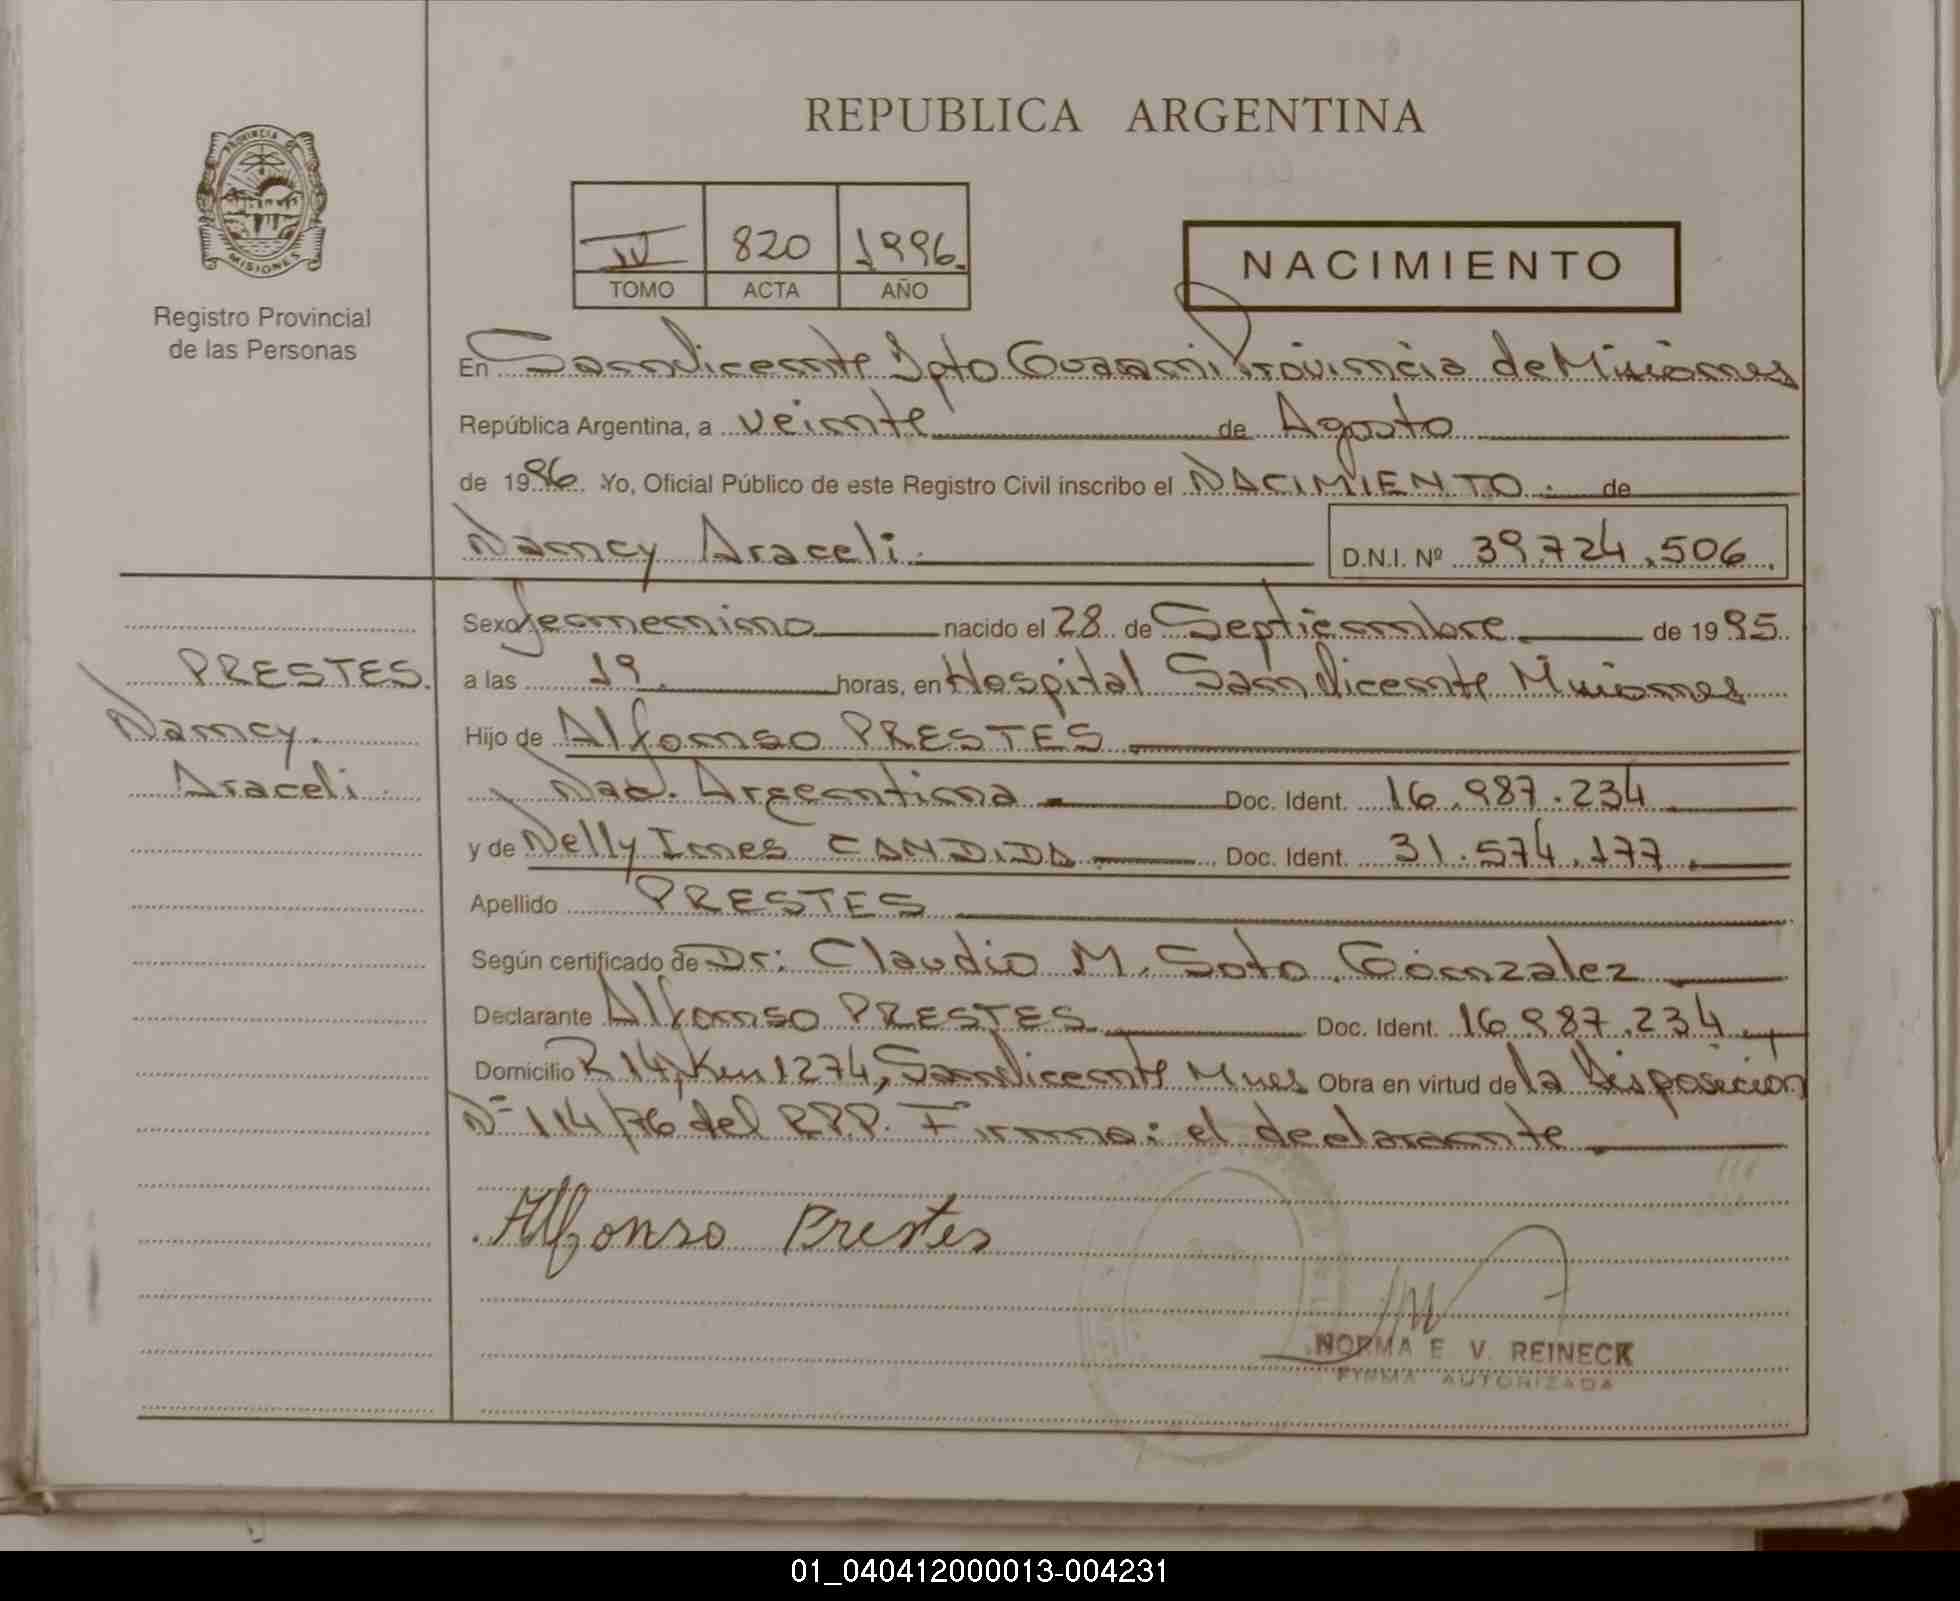 REPUBLICA ARGENTINA
PROVINCIA DE
MISIONES
Registro Provincial
de las Personas
IV 820 1996
TOMO ACTA AÑO
NACIMIENTO
En San Vicente Dpto Guarani Provincia de Misiones
República Argentina, a veinte de Agosto
de 1996. Yo, Oficial Público de este Registro Civil inscribo el NACIMIENTO. de
Nancy Araceli. D.N.I. Nº 39.724.506.
PRESTES.
Nancy.
Araceli.
Sexo femenino nacido el 28 de Septiembre de 1995.
a las 19. horas, en Hospital San Vicente Misiones
Hijo de Alfonso PRESTES
Nac. Argentina Doc. Ident. 16.987.234
y de Nelly Ines CANDIDA Doc. Ident. 31.574.177.
Apellido PRESTES
Según certificado de Dr: Claudio M. Soto Gonzalez
Declarante Alfonso PRESTES Doc. Ident. 16.987.234
Domicilio R 14, Km 1274, San Vicente Mnes Obra en virtud de la Disposición
Nº 114/76 del R.P.P. Firma: el declarante
Alfonso Prestes
NORMA E. V. REINECK
FIRMA AUTORIZADA
01_040412000013-004231